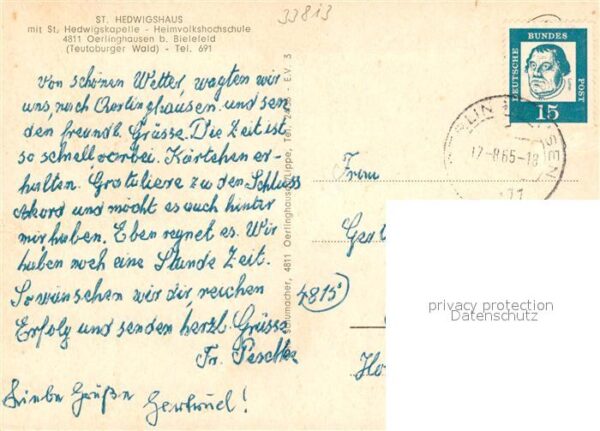 ST. HEDWIGSHAUS
mit St. Hedwigskapelle - Heimvolkshochschule
4811 Oerlinghausen b. Bielefeld
(Teutoburger Wald) - Tel. 691
33813
Von schönen Wetter, wagten wir
uns, nach Oerlinghausen und sen
den freundl. Grüsse. Die Zeit ist
so schnell vorbei. Kärtchen er-
halten. Gratuliere zu den Schluss
akord und möcht es auch hinter
mir haben. Eben regnet es. Wir
haben noch eine Stunde Zeit.
So wünschen wir dir reichen
Erfolg und senden herzl. Grüsse
Fr. Peschke
Liebe Grüße Gertrud!
Schumacher, 4811 Oerlinghausen/Lippe, Tel. E.V. 3
DEUTSCHE BUNDES POST
15
17.-8.65-18
Frau
Gert
(4815)
Ho
privacy protection
Datenschutz